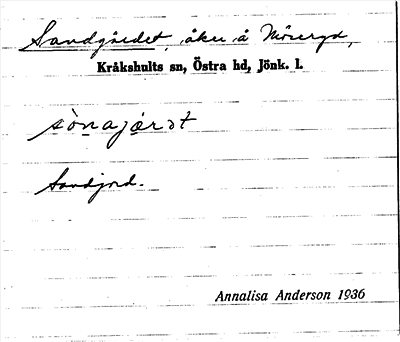 Sandgärdet, åker å Möseryd,
Kråkshults sn, Östra hd, Jönk. l.
sònajærət
Sandjord.
Annalisa Anderson 1936